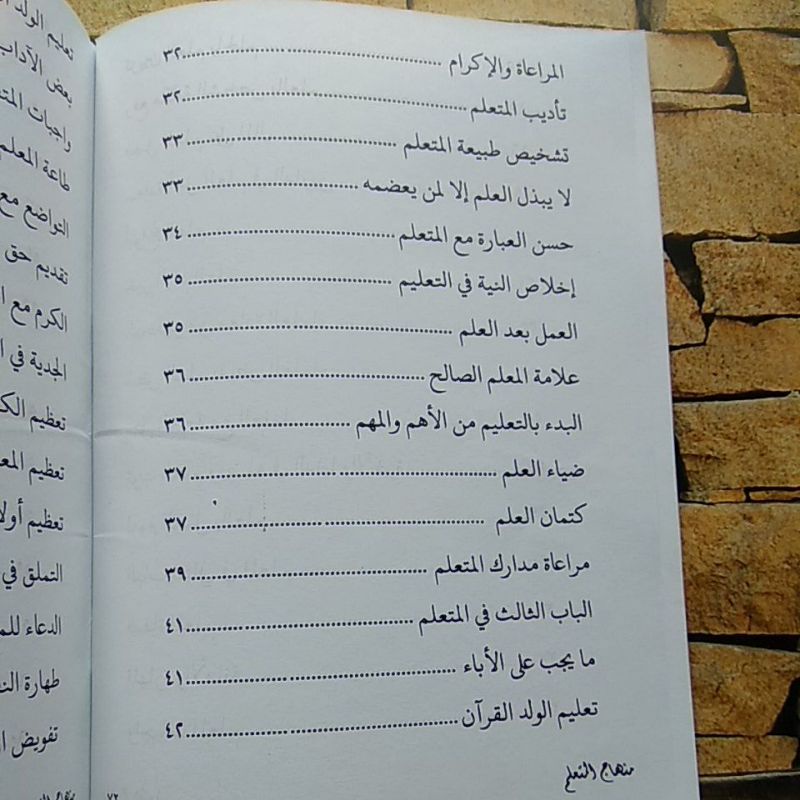 المراعاة والإكرام ٣٢
تأديب المتعلم ٣٢
تشخيص طبيعة المتعلم ٣٣
لا يبذل العلم إلا لمن يعضمه ٣٣
حسن العبارة مع المتعلم ٣٤
إخلاص النية في التعليم ٣٥
العمل بعد العلم ٣٥
علامة المعلم الصالح ٣٦
البدء بالتعليم من الأهم والمهم ٣٦
ضياء العلم ٣٧
كتمان العلم ٣٧
مراعاة مدارك المتعلم ٣٩
الباب الثالث في المتعلم ٤١
ما يجب على الأباء ٤١
تعليم الولد القرآن ٤٢
منهاج التعلم
تعليم الولد
بعض الآداب
واجبات
طاعة المعلم
التواضع مع
تقديم حق
الكرم مع
الجدية في
تعظيم
تعظيم
تعظيم
التملق في
الدعاء
طهارة
تفويض
٧٢